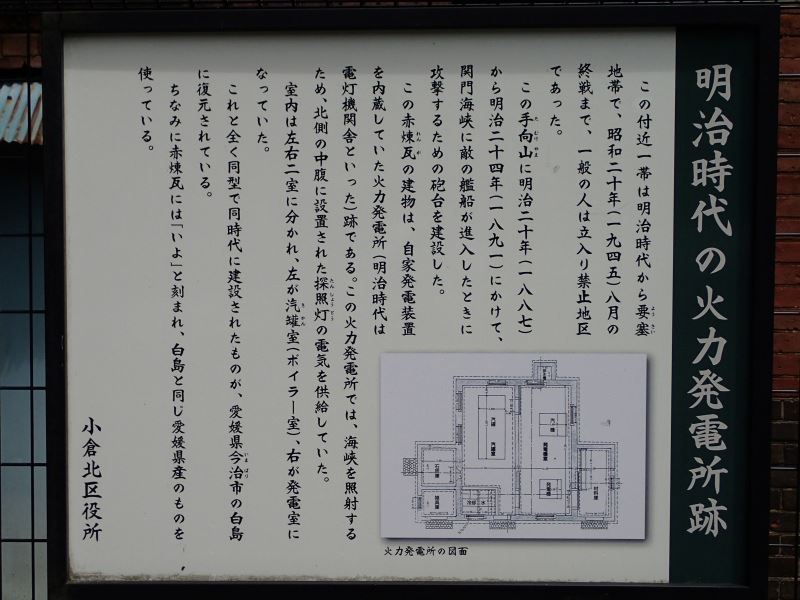 明治時代の火力発電所跡
この付近一帯は明治時代から要塞
地帯で、昭和二十年(一九四五)八月の
終戦まで、一般の人は立入り禁止地区
であった。
この手向山に明治二十年(一八八七)
から明治二十四年(一八九一)にかけて、
関門海峡に敵の艦船が進入したときに
攻撃するための砲台を建設した。
この赤煉瓦の建物は、自家発電装置
を内蔵していた火力発電所(明治時代は
電灯機関舎といった)跡である。この火力発電所では、海峡を照射する
ため、北側の中腹に設置された探照灯の電気を供給していた。
室内は左右二室に分かれ、左が汽罐室(ボイラー室)、右が発電室に
なっていた。
これと全く同型で同時代に建設されたものが、愛媛県今治市の白島
に復元されている。
ちなみに赤煉瓦には「いよ」と刻まれ、白島と同じ愛媛県産のものを
使っている。
小倉北区役所
火力発電所の図面
汽罐
汽罐室
汽機
発電機室
発電機
石炭庫
材料庫